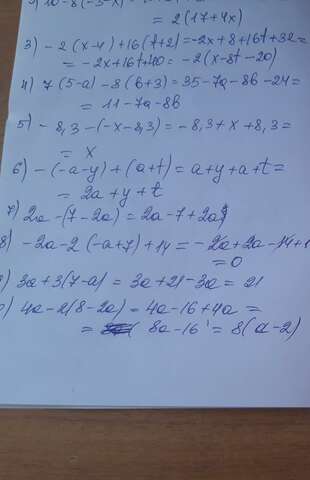 10-8(-3-x)
= 2(17+4x)
3) -2(x-4)+16(t+2)=-2x+8+16t+32=
= -2x+16t+40= -2(x-8t-20)
4) 7(5-a)-8(b+3)=35-7a-8b-24=
= 11-7a-8b
5) -8,3-(-x-8,3)=-8,3+x+8,3=
= x
6) -(-a-y)+(a+t)=a+y+a+t=
= 2a+y+t
7) 2a-(7-2a)=2a-7+2a
8) -2a-2(-a+7)+14=-2a+2a-14+1
=0
3a+3(7-a)=3a+21-3a=21
4a-2(8-2a)=4a-16+4a=
= 8a-16=8(a-2)